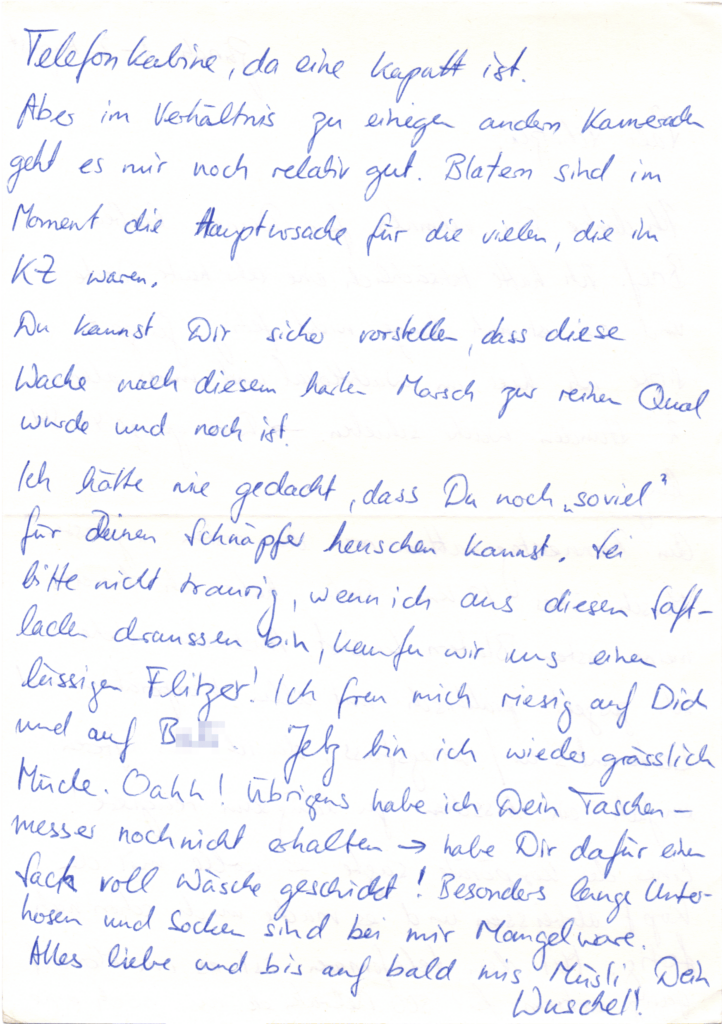 Telefonkabine, da eine kaputt ist.
Aber im Verhältnis zu einigen andern Kameraden
geht es mir noch relativ gut. Blatern sind im
Moment die Hauptursache für die vielen, die im
KZ waren.
Du kannst Dir sicher vorstellen, dass diese
Wache nach diesem harten Marsch zur reinen Qual
wurde und noch ist.
Ich hätte nie gedacht, dass Du noch „soviel"
für Deinen Schnäpfer heuschen kannst. Sei
bitte nicht traurig, wenn ich aus diesem Saft-
laden draussen bin, kaufen wir uns einen
lässigen Flitzer! Ich freu mich riesig auf Dich
und auf B. Jetz bin ich wieder grässlich
Müde. Oahh! Übrigens habe ich Dein Taschen-
messer noch nicht erhalten → habe Dir dafür einen
Sack voll Wäsche geschickt! Besonders lange Unter-
hosen und Socken sind bei mir Mangelware.
Alles liebe und bis auf bald mis Müsli, Dein
Wuschel!